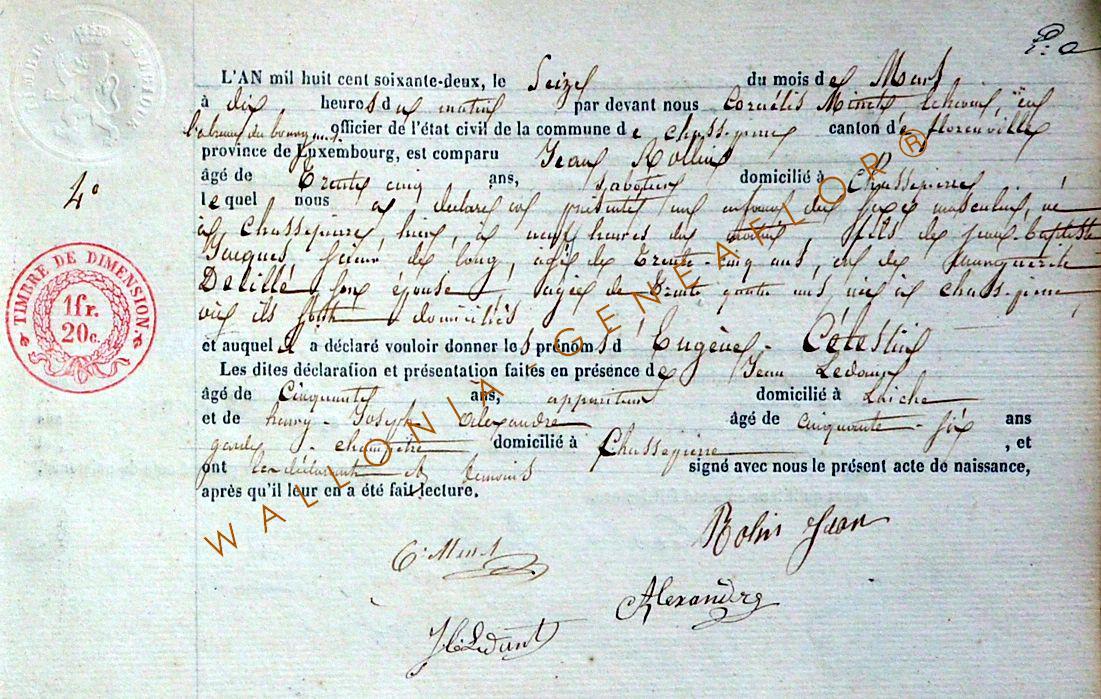 TIMBRE BELGIQUE
4°
TIMBRE DE DIMENSION.
1fr.
20c.
L'AN mil huit cent soixante-deux, le Seize du mois de Mars
à dix heures du matin par devant nous Cornélis Minet
officier de l'état civil de la commune de Chassepierre canton de florenville
province de Luxembourg, est comparu Jean Rollin
âgé de Trente cinq ans, sabotier domicilié à Chassepierre
lequel nous a déclaré et présenté un enfant du sexe masculin, né
à Chassepierre, hier, à neuf heures du matin fils de jean-baptiste
Jacques, scieur de long, âgé de Trente-cinq ans, et de Marguerite
Dellillé son épouse, âgée de Trente quatre ans, née à Chassepierre
où ils sont domiciliés
et auquel il a déclaré vouloir donner les prénoms d'Eugène-Célestin
Les dites déclaration et présentation faites en présence de Jean Ledant
âgé de Cinquante ans, appariteur domicilié à Laiche
et de henry-Joseph Alexandre âgé de cinquante-six ans
garde-champêtre domicilié à Chassepierre, et
ont les déclarant et témoins signé avec nous le présent acte de naissance,
après qu'il leur en a été fait lecture.
WALLONIA-GENEAFLOR®
Robin Jean
C. Minet
Alexandre
Ledant